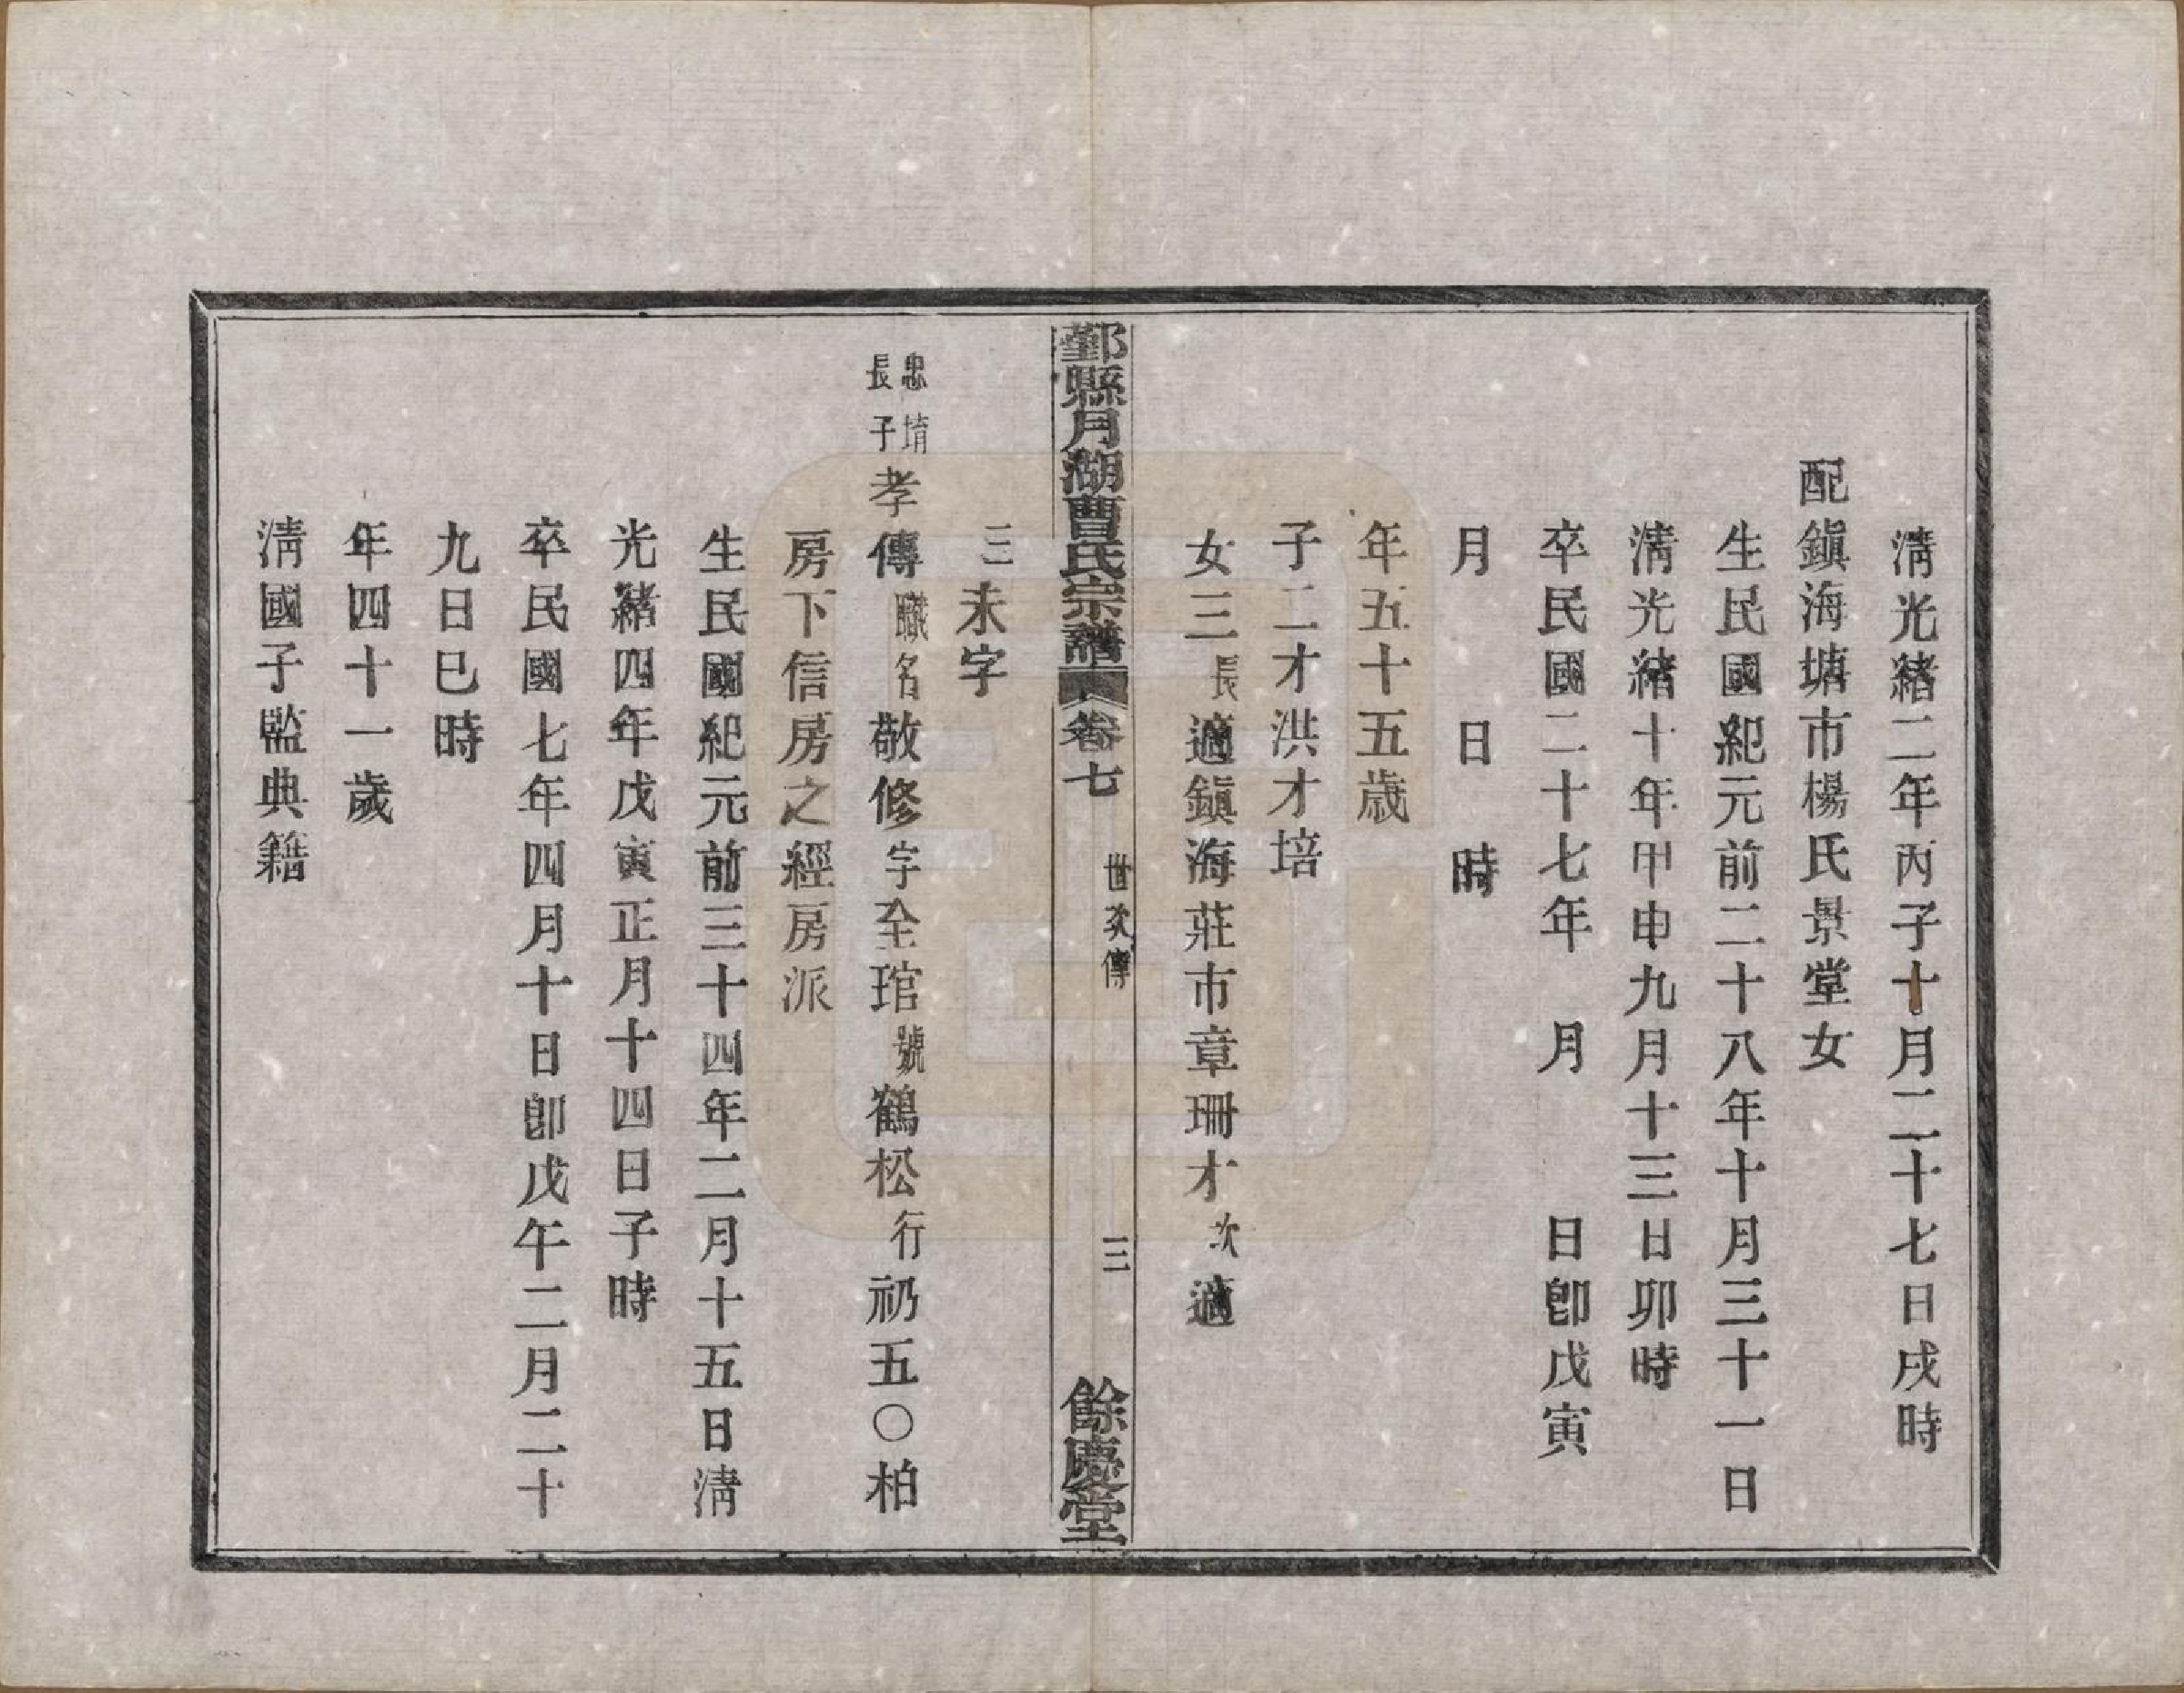 清光緒二年丙子十月二十七日戌時
配鎮海塘市楊氏景堂女
生民國紀元前二十八年十月三十一日
清光緒十年甲申九月十三日卯時
卒民國二十七年 月 日卽戊寅
月 日 時
年五十五歲
子二才洪才培
女三長適鎮海莊市章珊才次適
鄞縣月湖曹氏宗譜 卷七 世次傳 三 餘慶堂
三未字
忠堉長子孝傳職名敬修字全琯號鶴松行礽五〇柏
房下信房之經房派
生民國紀元前三十四年二月十五日清
光緒四年戊寅正月十四日子時
卒民國七年四月十日卽戊午二月二十
九日巳時
年四十一歲
清國子監典籍